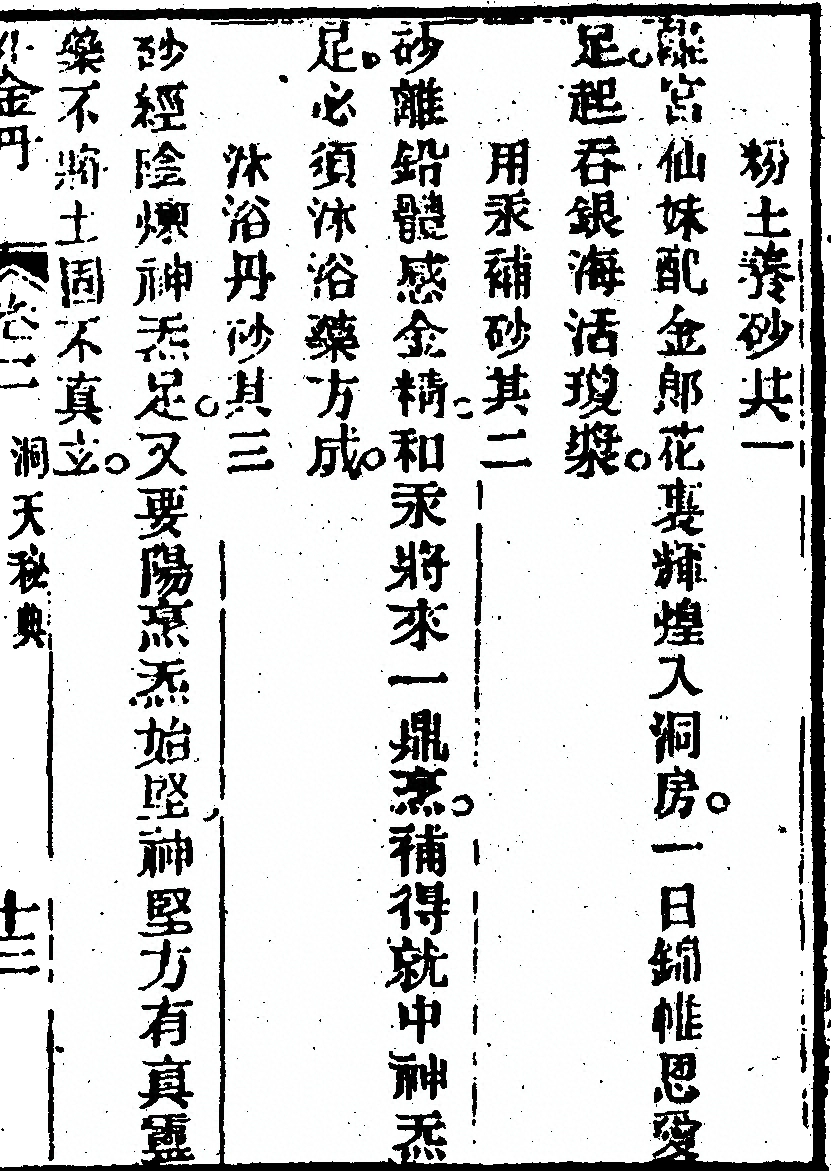 粉土養砂其一
離宮仙妹配金郎花裏輝煌入洞房一日錦帷恩愛
足起吞銀海活瓊漿
用汞補砂其二
砂離鉛體感金精和汞將來一鼎烹補得就中神炁
足必須沐浴藥方成
沐浴丹砂其三
砂經陰煉神炁足又要陽烹炁始堅神堅方有真靈
藥不將土固不真立
金丹 卷二 洞天秘典 十三